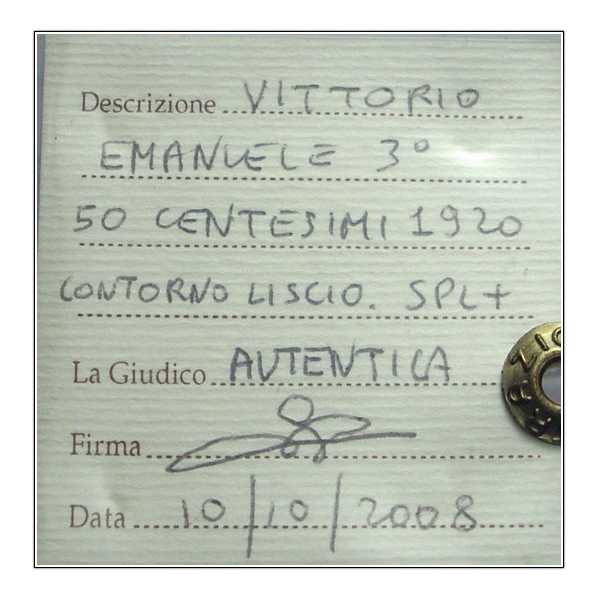 Descrizione VITTORIO
EMANUELE 3°
50 CENTESIMI 1920
CONTORNO LISCIO. SPL+
La Giudico AUTENTICA
Firma
Data 10/10/2008